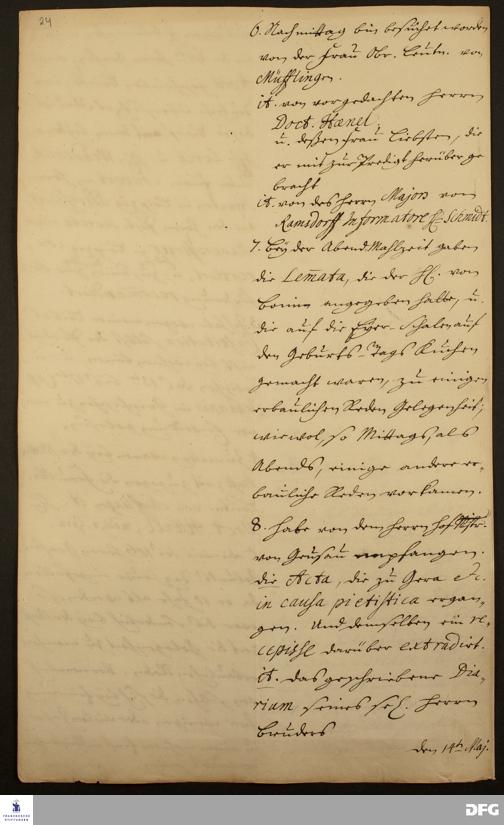 24
6. Nachmittag bin besuchet worden
von der Frau Obr. Leutn. von
Müfflingen.
it. von vorgedachten Herrn
Doct. Hænel,
u. deßen Frau Liebsten, die
er mit zur Predigt herüber ge
bracht
it. von des Herrn Majors von
Ramsdorff Informatore H. Schmidt.
7. bey der Abend Mahlzeit gaben
die Lem̄ata, die der H. von
angegeben hatte, u.
die auf die Eyer-schalen auf
den Geburts-Tags Kuchen
gemacht waren, zu einigen
erbaulichen Reden Gelegenheit;
wiewol, so Mittags, als
Abends, einige andere er-
bauliche Reden vorkamen.
8. habe von dem Herrn Hof
von Geusau empfangen.
die Acta, die zu Gera etc.
in causa pietistica ergan-
gen. Und demselben ein re-
cepisse darüber extradirt.
it. das geschriebene Dia-
rium seines sel. Herrn
Bruders
den 14t. Maj.
FRANCKESCHE
STIFTUNGEN
DFG